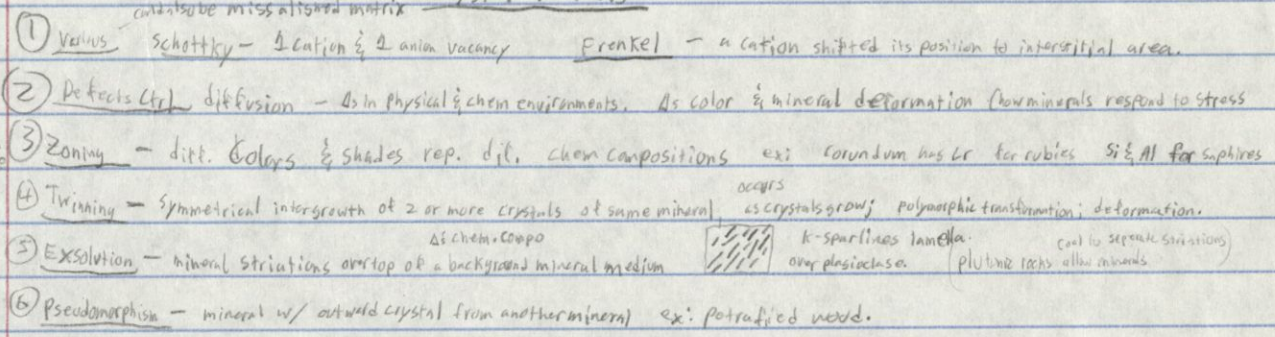 could also be missalined matrix
① Various Schottky - 1 cation & 1 anion vacancy Frenkel - a cation shifted its position to interstitial area.
② Defects Ctrl diffusion - Δs in physical & chem environments. Δs color & mineral deformation (how minerals respond to stress
③ Zoning - diff. Colors & shades rep. dif. chem compositions ex: corundum has Cr for rubies Si & Al for saphires
occurs
④ Twinning - Symmetrical intergrowth of 2 or more crystals of same mineral, as crystals grow; polymorphic transformation; deformation.
Δ; chem. compo
⑤ Exsolution - mineral striations overtop of a background mineral medium
K-spar lines lamella.
over plagioclase.
cool to seperate striations)
(plutonic rocks allow minerals
⑥ Pseudomorphism - mineral w/ outward crystal from another mineral ex: potrafied wood.